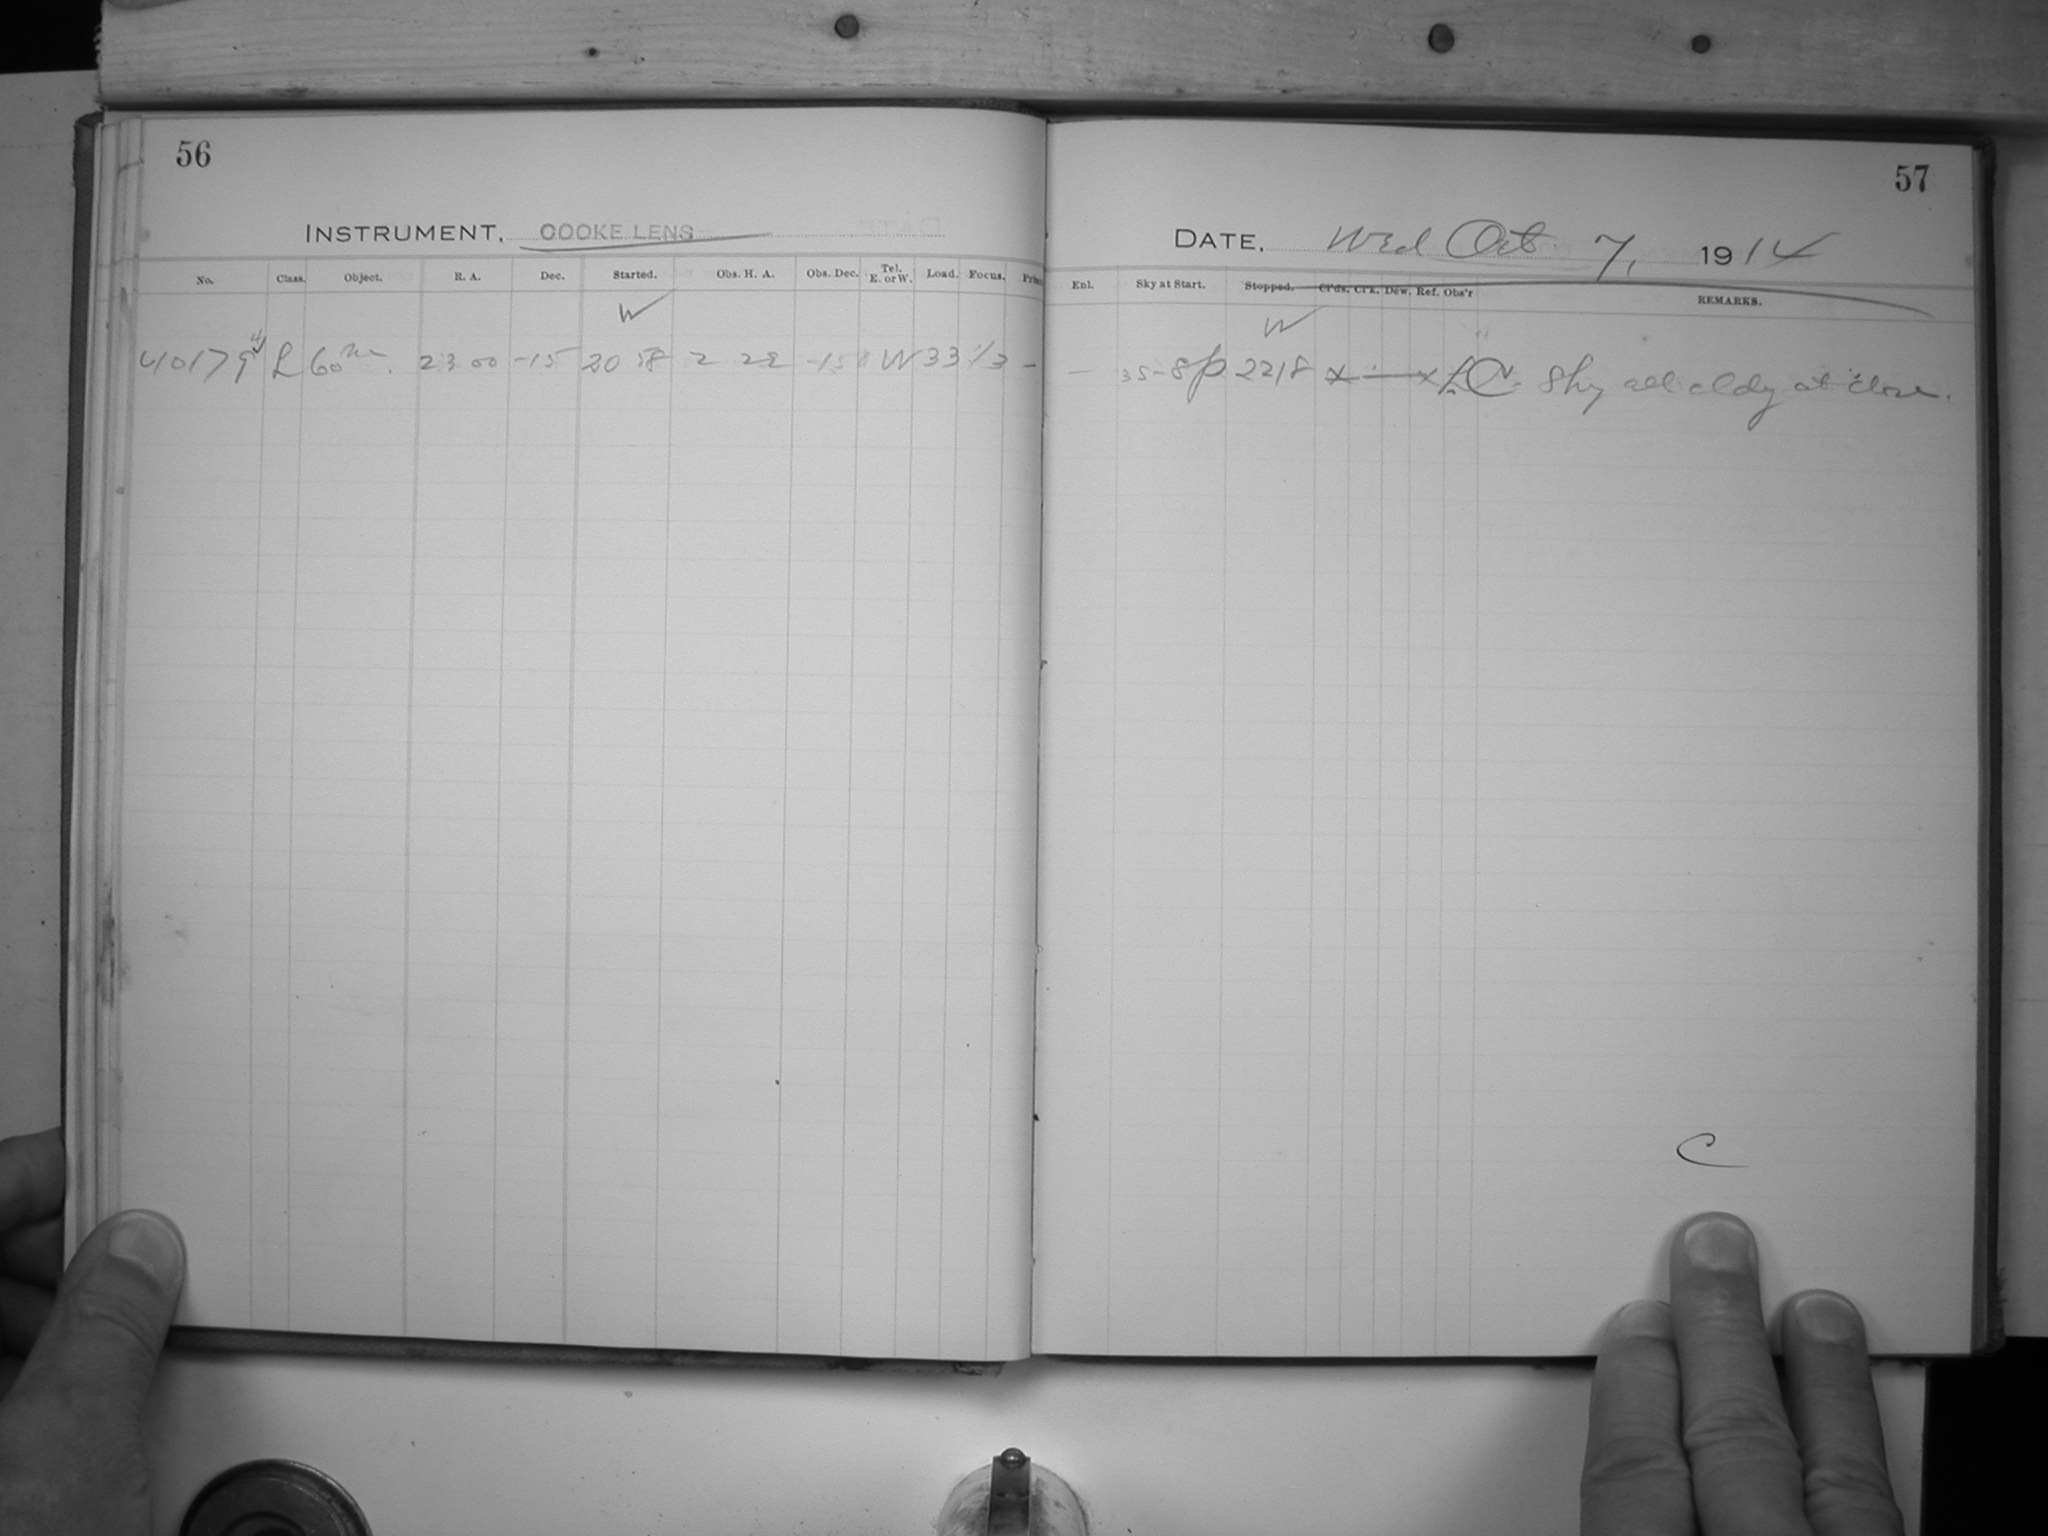 56
INSTRUMENT, COOKE LENS
No. Class. Object. R. A. Dec. Started. Obs. H. A. Obs. Dec. Tel. E. or W. Load. Focus.
W
40179 L 60m. 23 00 -15 20 58 2 22 -15 W 33 1/3 -
57
DATE, Wed Oct 7, 1914
Enl. Sky at Start. Stopped. Cl'ds. Cl'k. Dew. Ref. Obs'r REMARKS.
W
- 35-8p 2218 x - - x LC. Sky all cldy at close.
C